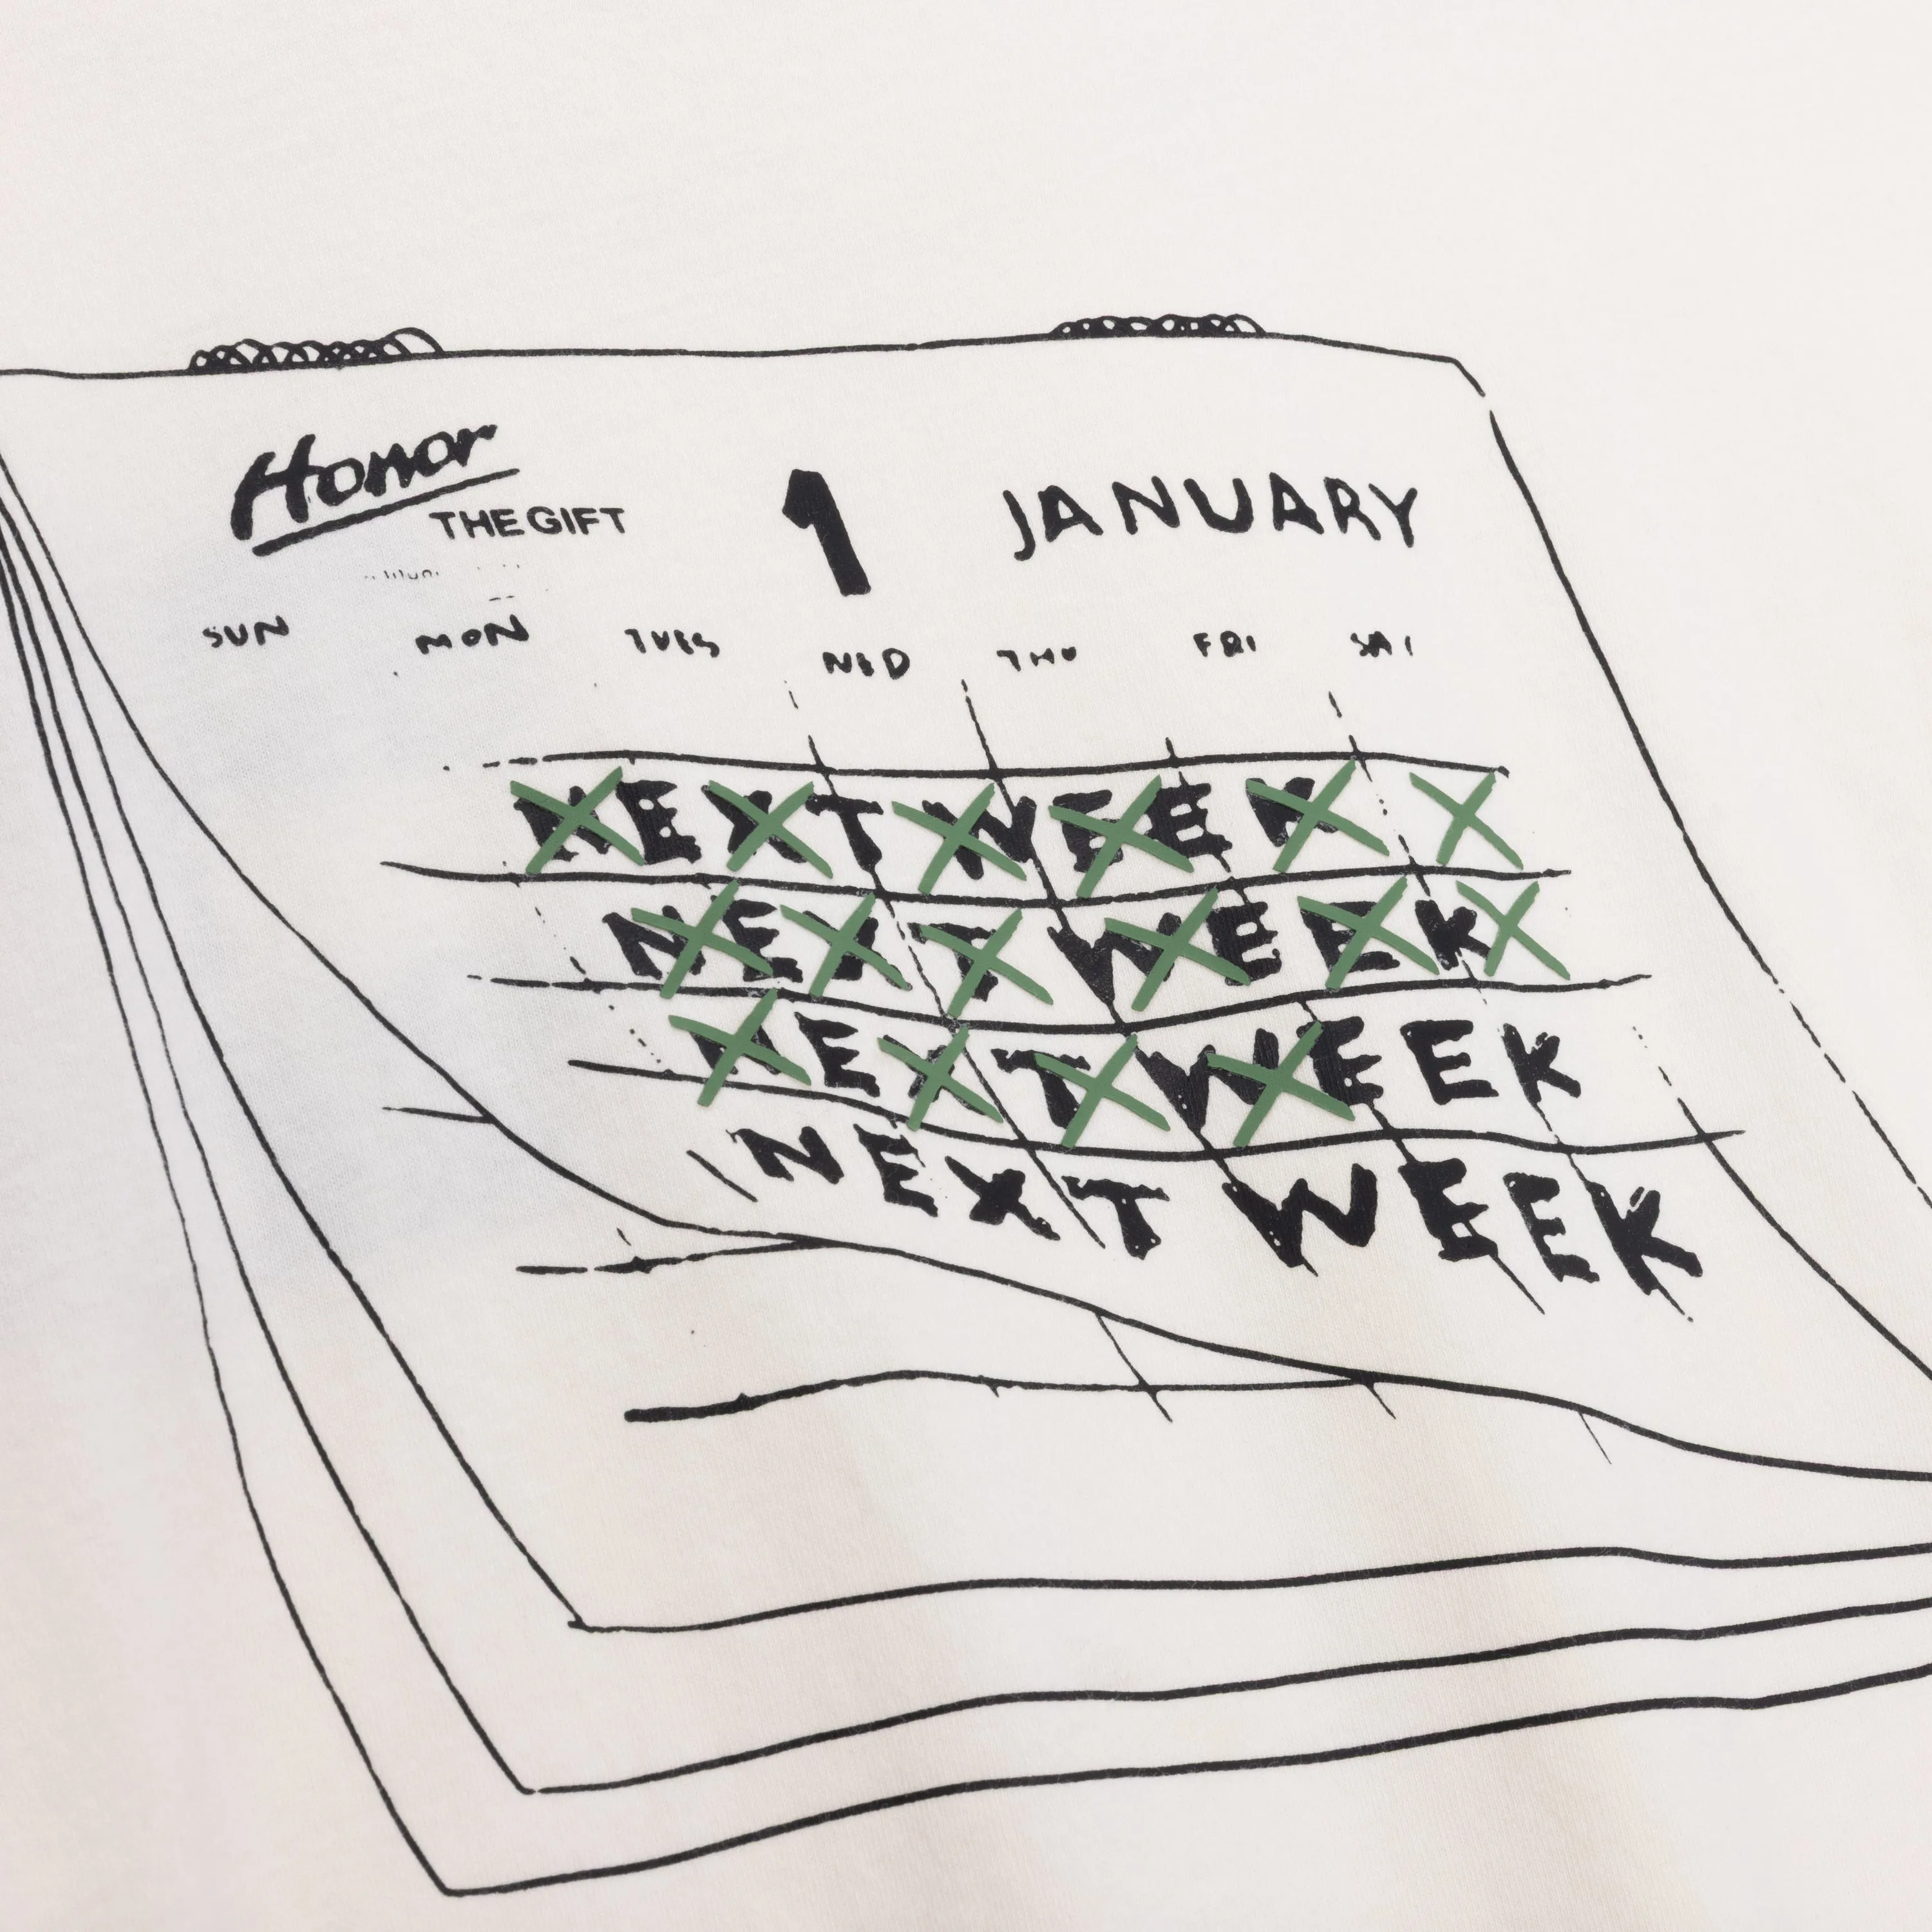 Honor
THE GIFT
1 JANUARY
SUN MON TUES WED THU FRI SAT
NEXT WEEK
NEXT WEEK
NEXT WEEK
NEXT WEEK